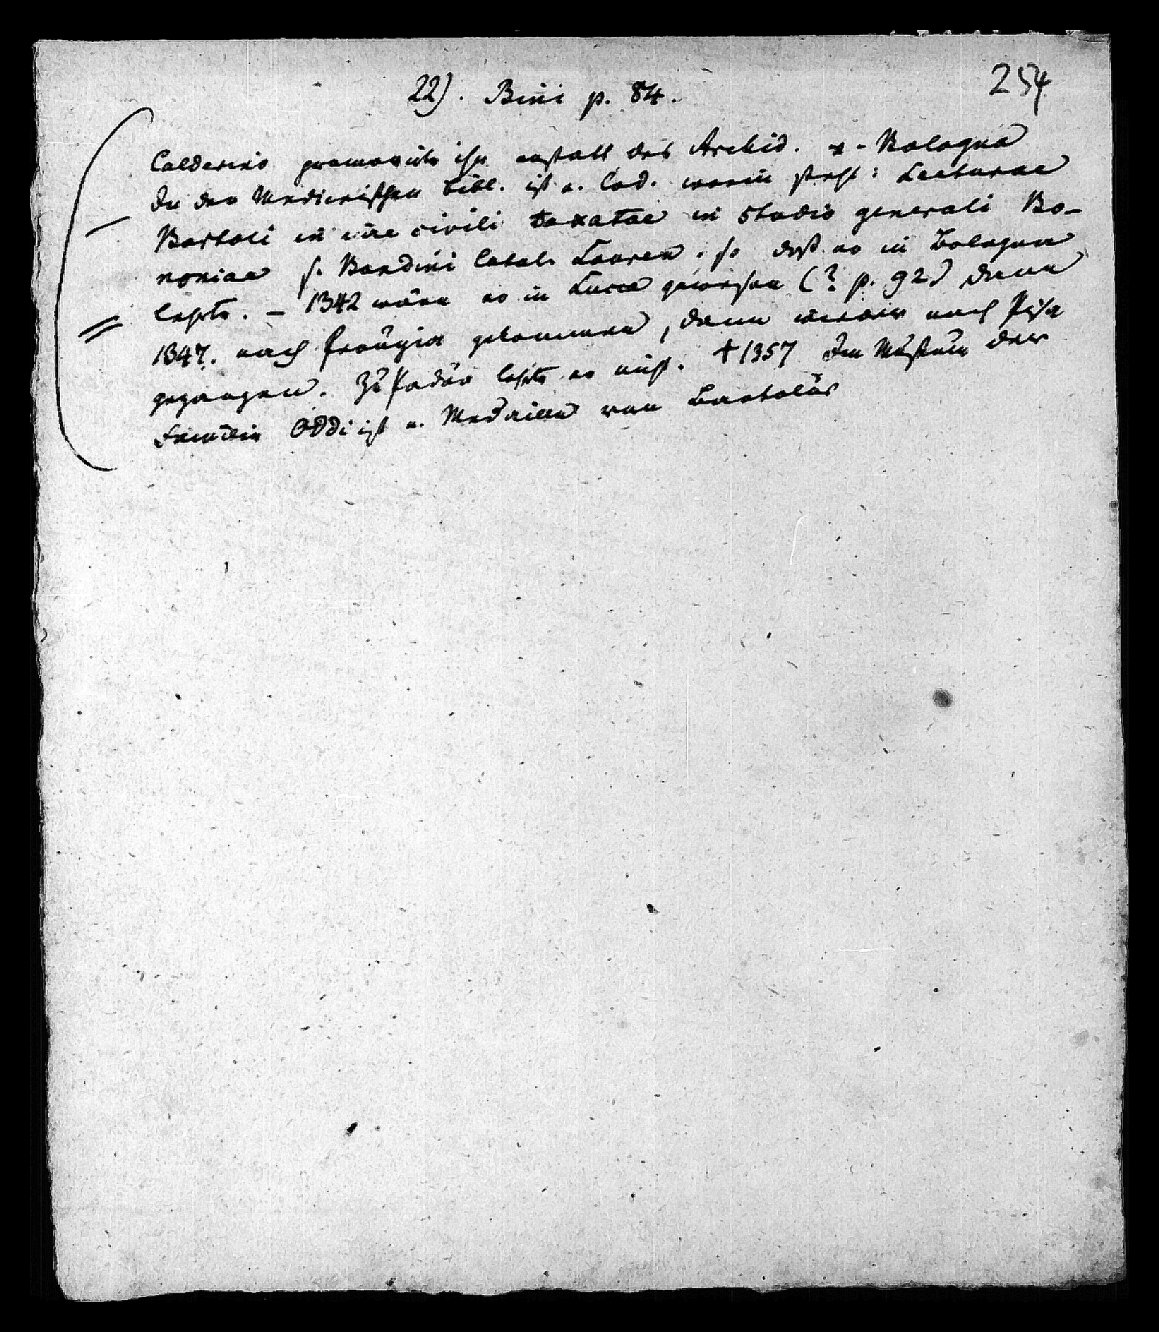 254
22). Bini p. 84.
Calderino promovirte ihn anstatt des Archid. v. Bologna
In der Mediceischen Bibl. ist e. Cod. worin steht: Lecturae
Bartoli in iure civili taxatae in studio generali Bo-
noniae s. Bandini Catal. Lauren. so daß er in Bologna
lehrte. – 1342 wäre er in Lucca gewesen (? p. 92) dann
1347. nach Perugia gekommen, dann wieder nach Pisa
gegangen. Zu Padua lehrte er nicht. † 1357 Im Museum der
Familie Oddi ist e. Medaille von Bartolus